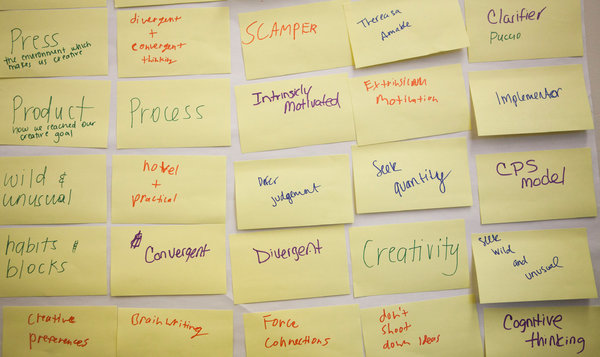 Press
the environment which
makes us creative
divergent
+
convergent
thinking
SCAMPER
Theresa
Amabile
Clarifier
Puccio
Product
how we reached our
creative goal
Process
Intrinsicly
Motivated
Extrinsic
Motivation
Implementor
wild &
unusual
novel
+
practical
Defer
judgement
Seek
quantity
CPS
model
habits &
blocks
Convergent
Divergent
Creativity
Seek
wild
and
unusual
Creative
preferences
Brainwriting
Force
connections
don't
shoot
down ideas
Cognitive
thinking